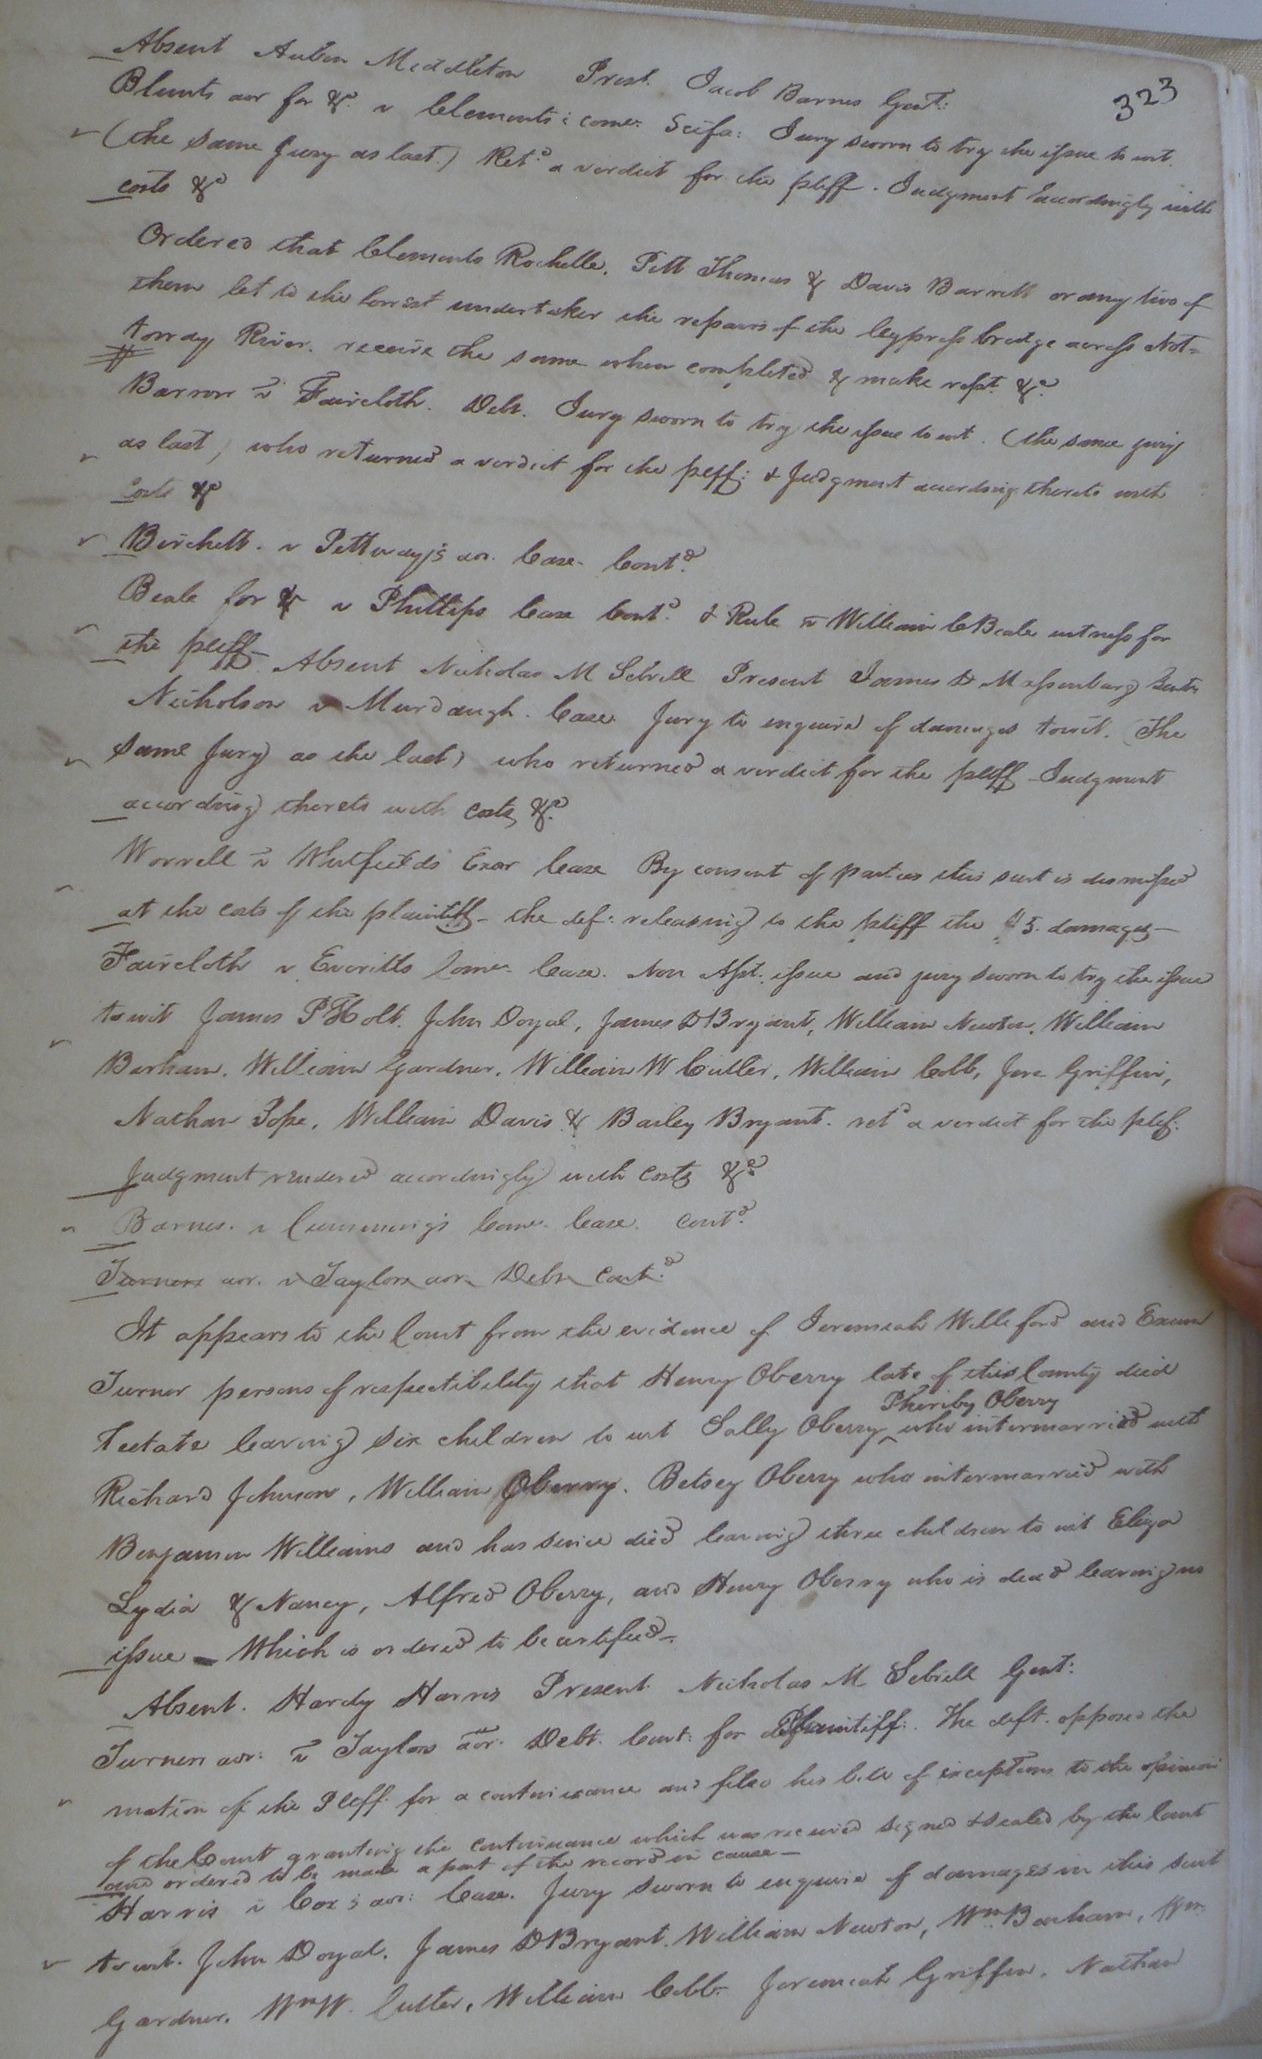 323
Absent Aubin Middleton Prest. Jacob Barnes Gent:
Blunts aor for &c. v Clements: come. Scifa: Jury sworn to try the issue to wit.
(the same jury as last.) Retd. a verdict for the plff. Judgment accordingly with
costs &c
Ordered that Clements Rochelle, Pitt Thomas & Davis Barrett or any two of
them let to the lowest undertaker the repairs of the Cypress bridge across Not=
toway River. receive the same when completed & make rept. &c.
Barrow v Faircloth. Debt. Jury sworn to try the issue to wit. (the same jury
as last, who returned a verdict for the plff: & Judgment according thereto with
Costs &c
Birchett. v Pettway's aor. Case. Contd.
Beale for & v Phillips Case Contd. & Rule v William C Beale witness for
the plff Absent Nicholas M Sebrell Present James D Massenburg Gentn
Nicholson v Murdaugh. Case. Jury to enquire of damages towit. (The
same Jury as the last) who returned a verdict for the plff Judgment
according thereto with costs, &c.
Worrell v Whitfields Exor Case By consent of parties this suit is dismissed
at the costs of the plaintiff the def: releasing to the pltff the $5. damages
Faircloth v Everitts Come. Case. Non Asst. issue and jury sworn to try the issue
to wit James P Holt. John Doyal, James D Bryant, William Newton, William
Barham, William Gardner, William W Cutler, William Cobb, Jere Griffin,
Nathan Pope, William Davis & Bailey Bryant. retd a verdict for the plff.
Judgment rendered accordingly with costs &c
Barnes. v Cummings Come. Case. contd.
Turners aor. v Taylors aor Debt Contd.
It appears to the Court from the evidence of Jeremiah Williford and Exum
Turner persons of respectibility that Henry Oberry late of this County died
Testate leaving six children to wit Sally Oberry, Pheriby Oberry who intermarried with
Richard Johnson, William Oberry. Betsey Oberry who intermarried with
Benjamin Williams and has since died leaving three children to wit Eliza
Lydia & Nancy, Alfred Oberry, and Henry Oberry who is dead leaving no
issue Which is ordered to be certified
Absent. Hardy Harris Present Nicholas M Sebrell Gent:
Turners aor: v Taylors aor. Debt. Cont: for Plaintiff. The deft. opposed the
motion of the Plff. for a continuance and filed his bill of exceptions to the opinion
of the Court granting the continuance which was received signed & sealed by the Court
and ordered to be made a part of the record in cause
Harris v Cox's aor: Case. Jury sworn to enquire of damages in this suit
to wit. John Doyal. James D Bryant. William Newton, Wm Barham, Wm
Gardner. Wm W. Cutler, William Cobb Jeremiah Griffin. Nathan